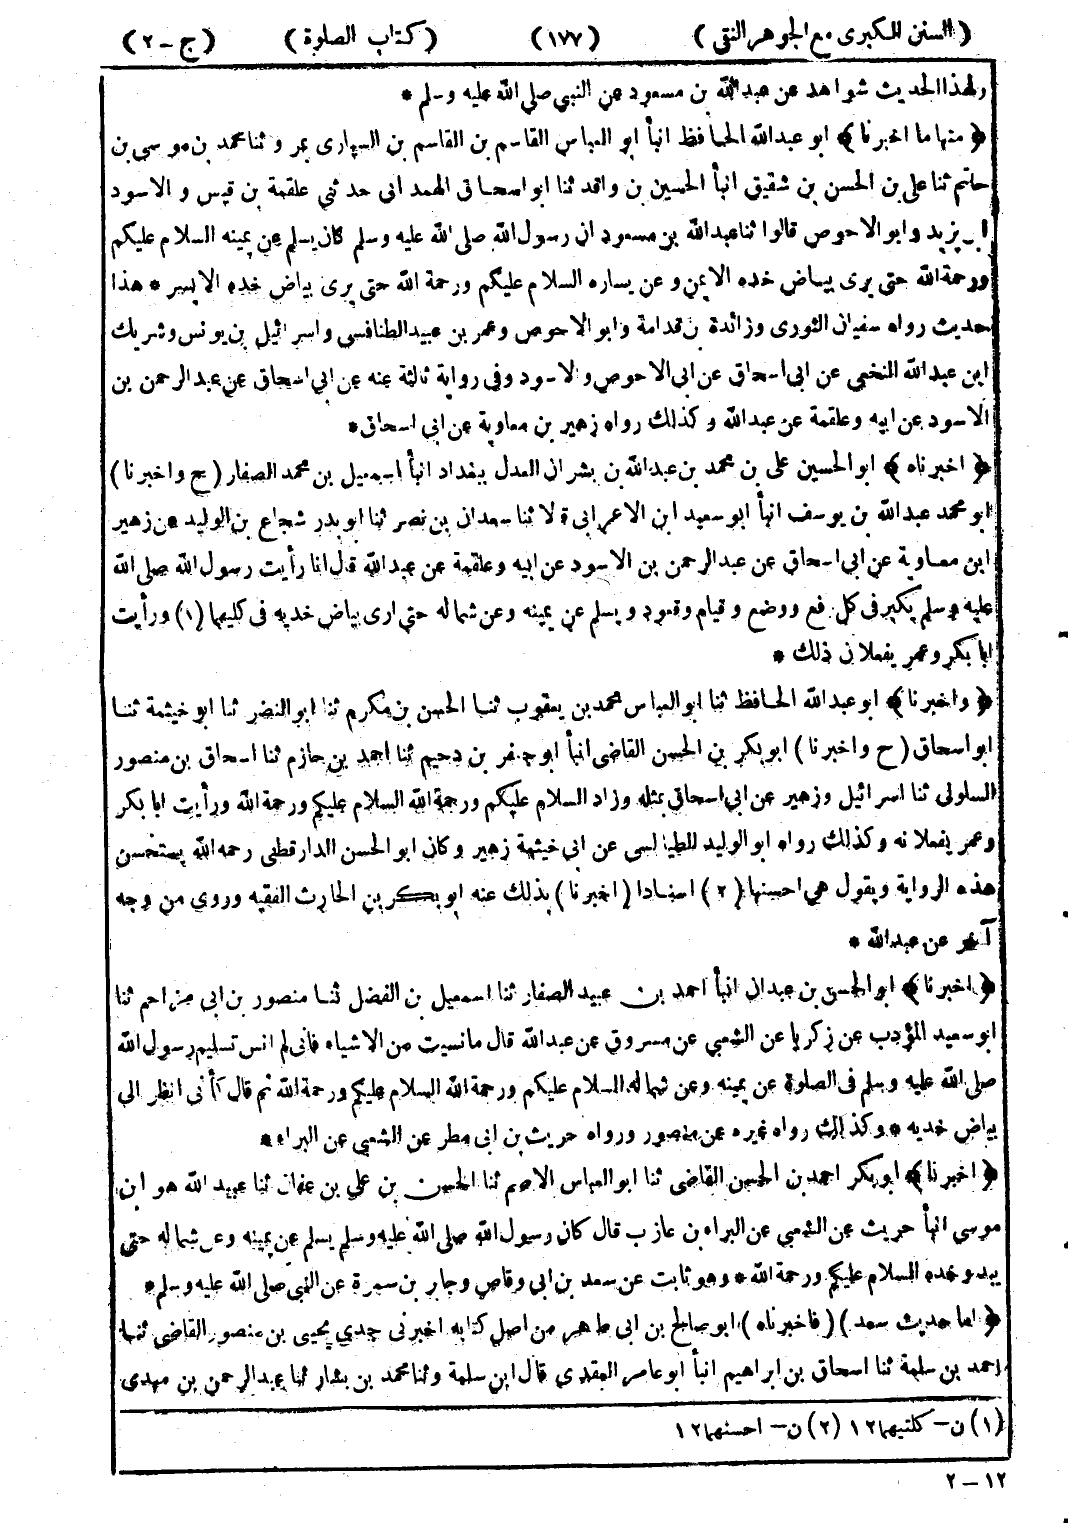 (السنن الكبرى مع الجوهر النقى) (١٧٧) (كتاب الصلوة) (ج-٢)
ولهذا الحديث شواهد عن عبدالله بن مسعود عن النبي صلى الله عليه وسلم *
﴿ منها ما اخبرنا ﴾ ابو عبدالله الحافظ انبأ ابو العباس القاسم بن القاسم بن السيارى بمرو ثنا محمد بن موسى بن
حاتم ثنا على بن الحسن بن شقيق انبأ الحسين بن واقد ثنا ابو اسحاق الهمدانى حدثنى علقمة بن قيس و الاسود
ابن يزيد وابو الاحوص قالوا ثنا عبدالله بن مسعود ان رسول الله صلى الله عليه وسلم كان يسلم عن يمينه السلام عليكم
ورحمة الله حتى يرى بياض خده الايمن وعن يساره السلام عليكم ورحمة الله حتى يرى بياض خده الايسر * هذا
حديث رواه سفيان الثورى وزائدة بن قدامة وابو الاحوص وعمر بن عبيد الطنافسى واسرائيل بن يونس وشريك
ابن عبدالله النخعى عن ابى اسحاق عن ابى الاحوص والاسود وفى رواية ثالثة عنه عن ابى اسحاق عن عبدالرحمن بن
الاسود عن ابيه وعلقمة عن عبدالله وكذلك رواه زهير بن معاوية عن ابى اسحاق *
﴿ اخبرناه ﴾ ابو الحسين على بن محمد بن عبدالله بن بشران العدل ببغداد انبأ اسمعيل بن محمد الصفار (ح واخبرنا)
ابو محمد عبدالله بن يوسف انبأ ابو سعيد ابن الاعرابى قالا ثنا سعدان بن نصر ثنا ابو بدر شجاع بن الوليد عن زهير
ابن معاوية عن ابى اسحاق عن عبدالرحمن بن الاسود عن ابيه وعلقمة عن عبدالله قال انا رأيت رسول الله صلى الله
عليه وسلم يكبر فى كل رفع ووضع وقيام وقعود ويسلم عن يمينه وعن شماله حتى ارى بياض خديه فى كليهما (١) ورأيت
ابا بكر وعمر يفعلان ذلك *
﴿ واخبرنا ﴾ ابو عبدالله الحافظ ثنا ابو العباس محمد بن يعقوب ثنا الحسن بن مكرم ثنا ابو النضر ثنا ابو خيثمة ثنا
ابو اسحاق (ح واخبرنا) ابو بكر بن الحسن القاضى انبأ ابو جعفر بن دحيم ثنا احمد بن حازم ثنا اسحاق بن منصور
السلولى ثنا اسرائيل وزهير عن ابى اسحاق بمثله وزاد السلام عليكم ورحمة الله السلام عليكم ورحمة الله ورأيت ابا بكر
وعمر يفعلانه وكذلك رواه ابو الوليد الطيالسى عن ابى خيثمة زهير وكان ابو الحسن الدارقطنى رحمه الله يستحسن
هذه الرواية ويقول هى احسنها (٢) اسنادا (اخبرنا) بذلك عنه ابو بكر بن الحارث الفقيه وروي من وجه
آخر عن عبدالله *
﴿ اخبرنا ﴾ ابو الحسن بن عبدان انبأ احمد بن عبيد الصفار ثنا اسمعيل بن الفضل ثنا منصور بن ابى مزاحم ثنا
ابو سعيد المؤدب عن زكريا عن الشعبى عن مسروق عن عبدالله قال ما نسيت من الاشياء فانى لم انس تسليم رسول الله
صلى الله عليه وسلم فى الصلوة عن يمينه وعن شماله السلام عليكم ورحمة الله السلام عليكم ورحمة الله ثم قال كأنى انظر الى
بياض خديه * وكذلك رواه غيره عن منصور ورواه حريث بن ابى مطر عن الشعبى عن البراء *
﴿ اخبرنا ﴾ ابو بكر احمد بن الحسن القاضى ثنا ابو العباس الاصم ثنا الحسن بن على بن عفان ثنا عبيد الله هو ابن
موسى انبأ حريث عن الشعبى عن البراء بن عازب قال كان رسول الله صلى الله عليه وسلم يسلم عن يمينه وعن شماله حتى
يبدو خده السلام عليكم ورحمة الله * وهو ثابت عن سعد بن ابى وقاص وجابر بن سمرة عن النبى صلى الله عليه وسلم *
﴿ اما حديث سعد ) (فاخبرناه) ابو صالح بن ابى طاهر من اصل كتابه اخبرنى جدي يحيى بن منصور القاضى ثنا
احمد بن سلمة ثنا اسحاق بن ابراهيم انبأ ابو عامر العقدى قال ابن سلمة وثنا محمد بن بشار ثنا عبدالرحمن بن مهدى
(١) ن- كلتيهما ١٢ (٢) ن- احسنهما ١٢
١٢ - ٢